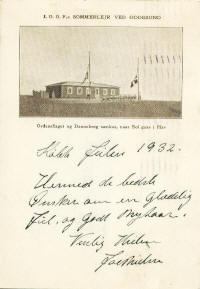 I. O. G. T.s SOMMERLEJR VED GODSSUND
Ordensflaget og Dannebrog sænkes, naar Sol gaar i Hav
Julen 1932.
Hermed de bedste
Ønsker om en Glædelig
Jul, og Godt Nytaar.
Venlig Hilsen